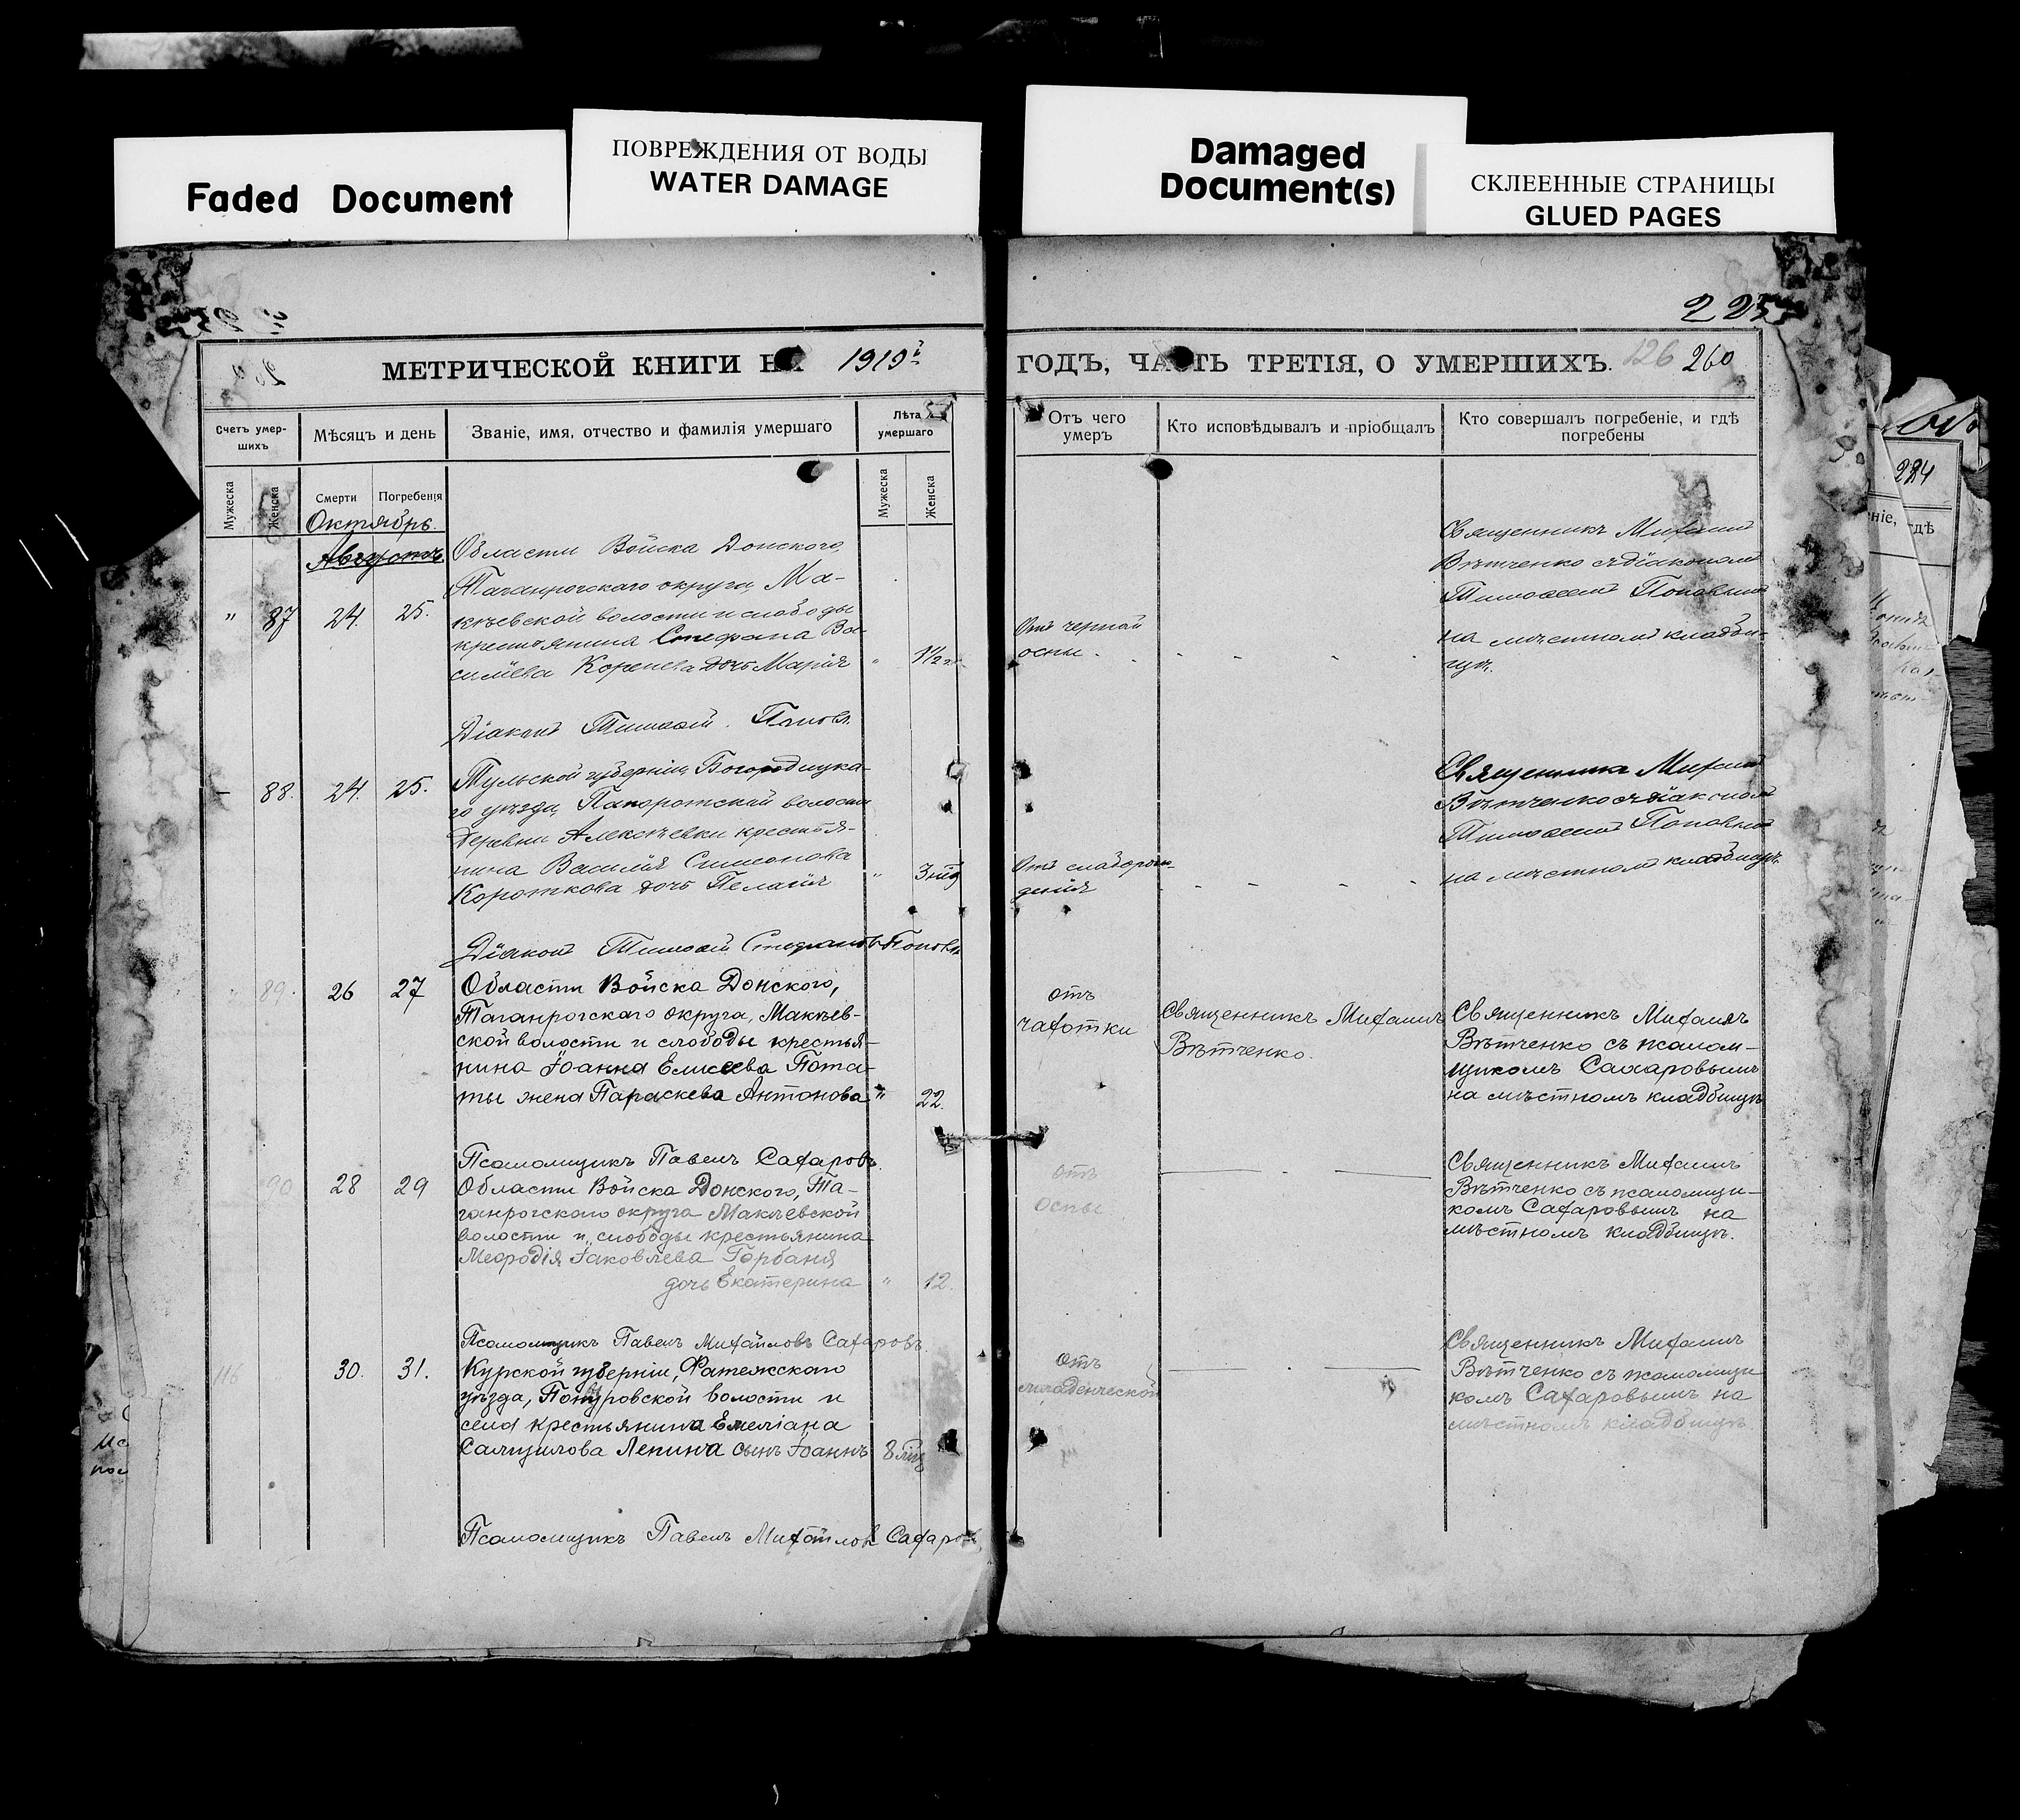 Faded Document
ПОВРЕЖДЕНИЯ ОТ ВОДЫ
WATER DAMAGE
Damaged
Document(s)
СКЛЕЕННЫЕ СТРАНИЦЫ
GLUED PAGES
225
МЕТРИЧЕСКОЙ КНИГИ НА 1919 г. ГОДЪ, ЧАСТЬ ТРЕТІЯ, О УМЕРШИХЪ. 126 260
Счетъ умер-
шихъ
Мѣсяцъ и день
Званіе, имя, отчество и фамилія умершаго
Лѣта
умершаго
Отъ чего
умеръ
Кто исповѣдывалъ и пріобщалъ
Кто совершалъ погребеніе, и гдѣ
погребены
Мужеска
Женска
Смерти
Погребенія
Мужеска
Женска
Октябрь.
Августъ
" 87 24. 25.
Области Войска Донского,
Таганрогскаго округа, Ма-
кѣевской волости и слободы
крестьянина Стефана Ва-
силіева Коренева дочь Марія " 1½ г.
Отъ черной
оспы.
Священникъ Михаилъ
Вѣтченко съ діакономъ
Тимоѳеемъ Поповымъ
на мѣстномъ кладби-
щѣ.
Діаконъ Тимоѳей Поповъ
88. 24. 25.
Тульской губерніи, Богородицка-
го уѣзда, Папоротской волости
деревни Алексѣевки крестья-
нина Василія Симеонова
Короткова дочь Пелагія " 3 м.
Отъ слаборож-
денія
Священникъ Михаилъ
Вѣтченко съ діакономъ
Тимоѳеемъ Поповымъ
на мѣстномъ кладбищѣ.
Діаконъ Тимоѳей Стефановъ Поповъ
89. 26 27
Области Войска Донского,
Таганрогскаго округа, Макѣев-
ской волости и слободы крестья-
нина Іоанна Елисеева Пота-
ты жена Параскева Антонова " 22.
отъ
чахотки
Священникъ Михаилъ
Вѣтченко.
Священникъ Михаилъ
Вѣтченко съ псалом-
щикомъ Сахаровымъ
на мѣстномъ кладбищѣ
Псаломщикъ Павелъ Сахаровъ.
90 28 29
Области Войска Донского, Та-
ганрогскаго округа Макѣевской
волости и слободы крестьянина
Меѳодія Іаковлева Горбаня
дочь Екатерина " 12.
отъ
оспы
Священникъ Михаилъ
Вѣтченко съ псаломщи-
комъ Сахаровымъ на
мѣстномъ кладбищѣ.
Псаломщикъ Павелъ Михайловъ Сахаровъ.
116 30. 31.
Курской губерніи, Фатежскаго
уѣзда, волости и
села крестьянина Емеліана
Лепина сынъ Іоаннъ 8 м.
отъ
младенческой
Священникъ Михаилъ
Вѣтченко съ псаломщи
комъ Сахаровымъ на
мѣстномъ кладбищѣ
Псаломщикъ Павелъ Михайловъ Сахаровъ
224
гдѣ